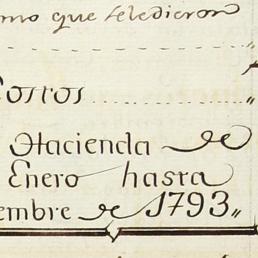 mo que se le dieron
Hacienda de
Enero hasta
embre de 1793,,